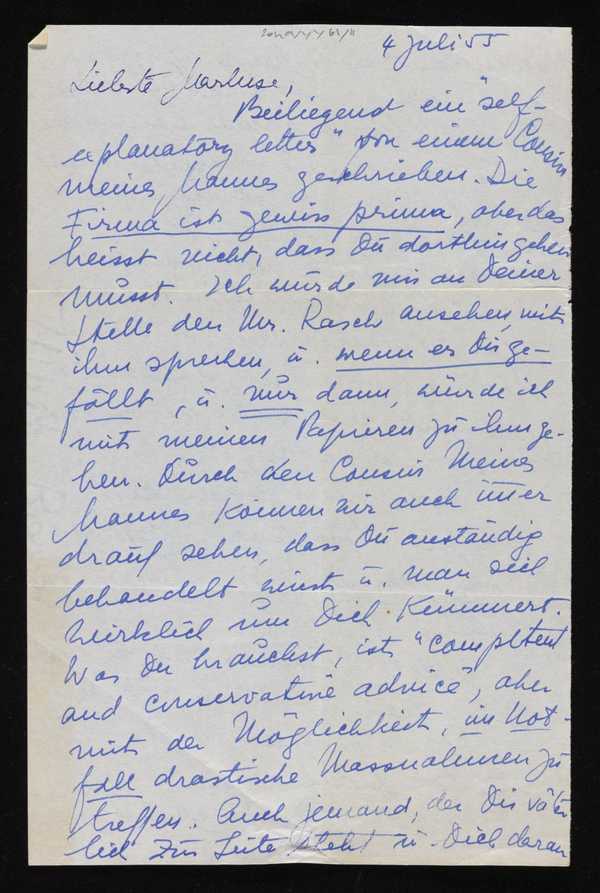 4 Juli 55
Liebste Marluse,
Beiliegend ein "self-
explanatory letter" von einem Cousin
meines Mannes geschrieben. Die
Firma ist gewiss prima, aber das
heisst nicht, dass Du dorthin gehen
musst. Ich würde mir an Deiner
Stelle den Mr. Rasch ansehen, mit
ihm sprechen, u. wenn er Dir ge-
fällt, u. nur dann, würde ich
mit meinen Papieren zu ihm ge-
hen. Durch den Cousin meines
Mannes können wir auch immer
drauf sehen, dass Du anständig
behandelt wirst u. man sich
wirklich um Dich kümmert.
Was Du brauchst, ist "competent
and conservative advice", aber
mit der Möglichkeit, im Not-
fall drastische Massnahmen zu
treffen. Auch jemand, der Dir väter
lich zur Seite steht u. Dich daran